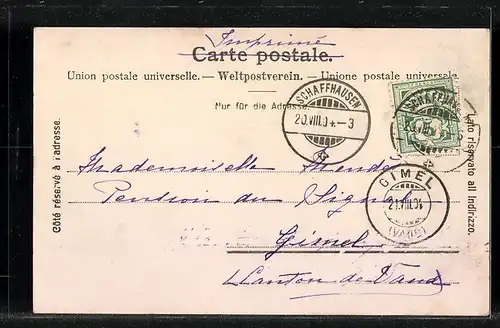 Imprimé
Carte postale.
Union postale universelle. — Weltpostverein. — Unione postale universale
Nur für die Adresse.
SCHAFFHAUSEN
20.VIII.04.-3
SCHAFFHAUSEN
Côté réservé à l'adresse.
Lato riservato all indirizzo.
Mademoiselle
Pension du Signal
Gimel
Canton de Vaud
GIMEL
21.VIII.04
(VAUD)